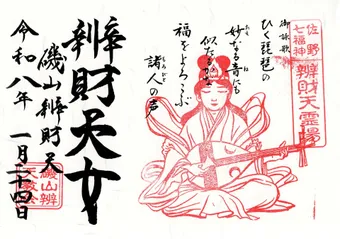 佐野
七福神
辨財天霊場
御詠歌
ひく琵琶の
妙なる音にも
似たるかな
福をよろこぶ
諸人の声
辨財天女
磯山辨財天
令和八年 一月二十四日
磯山辨